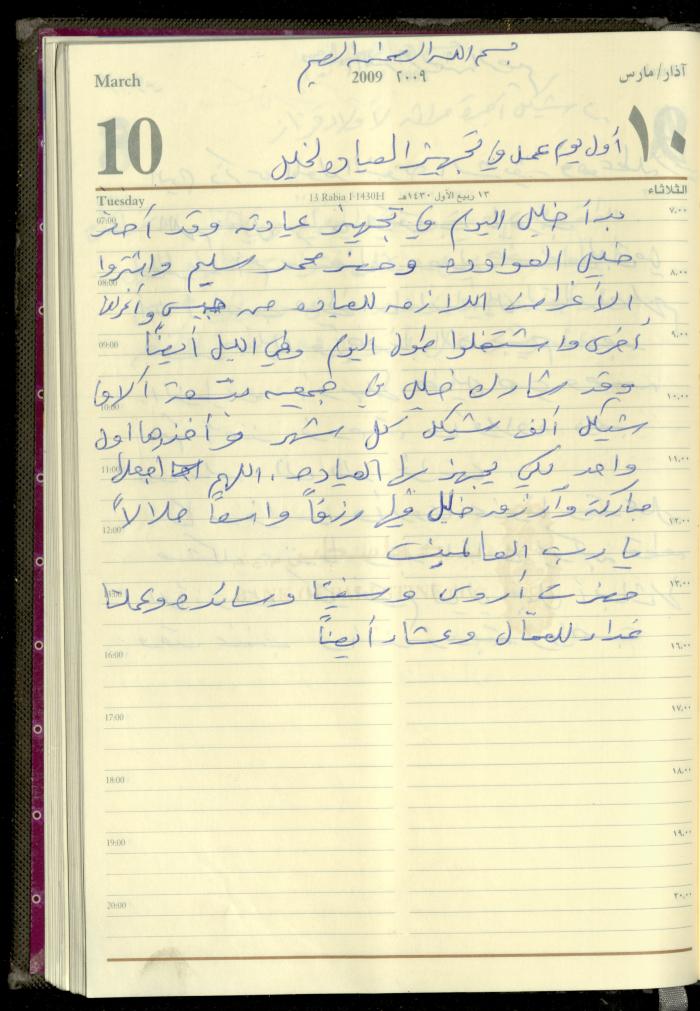 بسم الله الرحمن الرحيم
March 2009 ٢٠٠٩ آذار/مارس
10 ١٠
أول يوم عمل في تجهيز العيادة لخليل
Tuesday 13 Rabia I 1430H ١٣ ربيع الأول ١٤٣٠هـ الثلاثاء
07:00 ٧،٠٠
بدأ خليل اليوم في تجهيز عيادته وقد أحضر
خليل العواودة وحضر محمد سليم واشتروا
08:00 ٨،٠٠
الأغراض اللازمة للعيادة من وأغراض
09:00 ٩،٠٠
أخرى واشتغلوا طول اليوم وفي الليل أيضاً
وقد شارك خليل في جمعية بتسعة آلاف
10:00 ١٠،٠٠
شيكل ألف شيكل كل شهر وأخذها أول
11:00 ١١،٠٠
واحد لكي يجهز بها العيادة. اللهم اجعلها
مباركة وارزق خليل فيها رزقاً واسعاً حلالاً
12:00 ١٢،٠٠
يا رب العالمين
١٣،٠٠
حضرت أروى وسنيتا وسائدة وعملنا
غداء للعمّال وعشاء أيضاً
16:00 ١٦،٠٠
17:00 ١٧،٠٠
18:00 ١٨،٠٠
19:00 ١٩،٠٠
20:00 ٢٠،٠٠